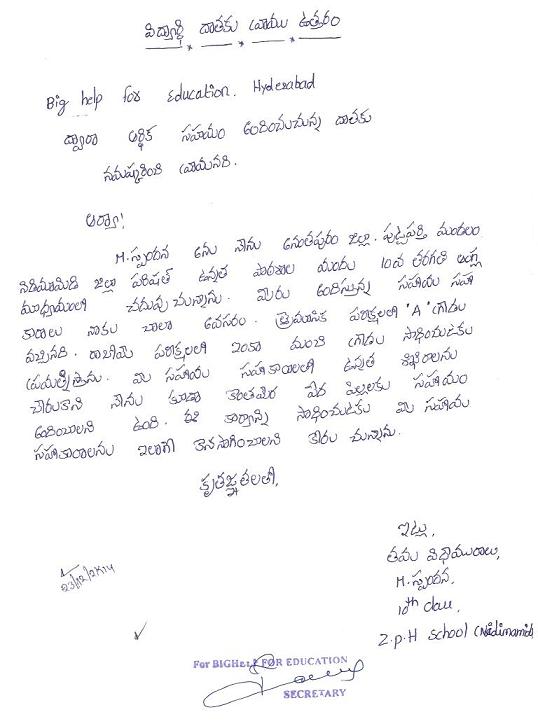 విద్యార్థి దాతకు వ్రాయు ఉత్తరం
Big help for Education. Hyderabad
ద్వారా ఆర్థిక సహాయం అందించుచున్న దాతకు
నమష్కరించి వ్రాయునది.
ఆర్యా!
M.స్పందన అను నేను అనంతపురం జిల్లా. పుట్టపర్తి మండలం
నిడిమామిడి జిల్లా పరిషత్ ఉన్నత పాఠశాల యందు 10వ తరగతి ఆంగ్ల
మాధ్యమంలో చదువుచున్నాను. మీరు అందిస్తున్న సహాయ సహ
కారాలు నాకు చాలా అవసరం. త్రైమాసిక పరీక్షలలో 'A' గ్రేడు
వచ్చినది. రాబోయే పరీక్షలలో ఇంకా మంచి గ్రేడు సాధించుటకు
ప్రయత్నిస్తాను. మీ సహాయ సహకారాలతో ఉన్నత శిఖరాలను
చేరుకొని నేను కూడా కొంతమంది పేద పిల్లలకు సహాయం
అందించాలని ఉంది. ఈ కార్యాన్ని సాధించుటకు మీ సహాయ
సహకారాలను ఇలాగే కొనసాగించాలని కోరు చున్నాను.
కృతజ్ఞతలతో,
ఇట్లు,
తమ విధేయురాలు,
M.స్పందన,
10th class,
Z.p.H school (Nidimamidi)
23/12/2K14
For BIGHELP FOR EDUCATION
SECRETARY